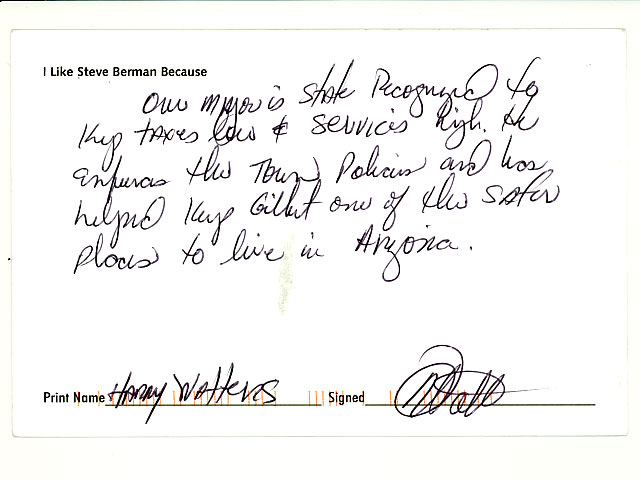 I Like Steve Berman Because
Our mayor is State Recognized to
Keep taxes low & services high. He
enforces the Town Policies and has
helped Keep Gilbert one of the Safer
Places to live in Arizona.
Print Name Harry Watters Signed